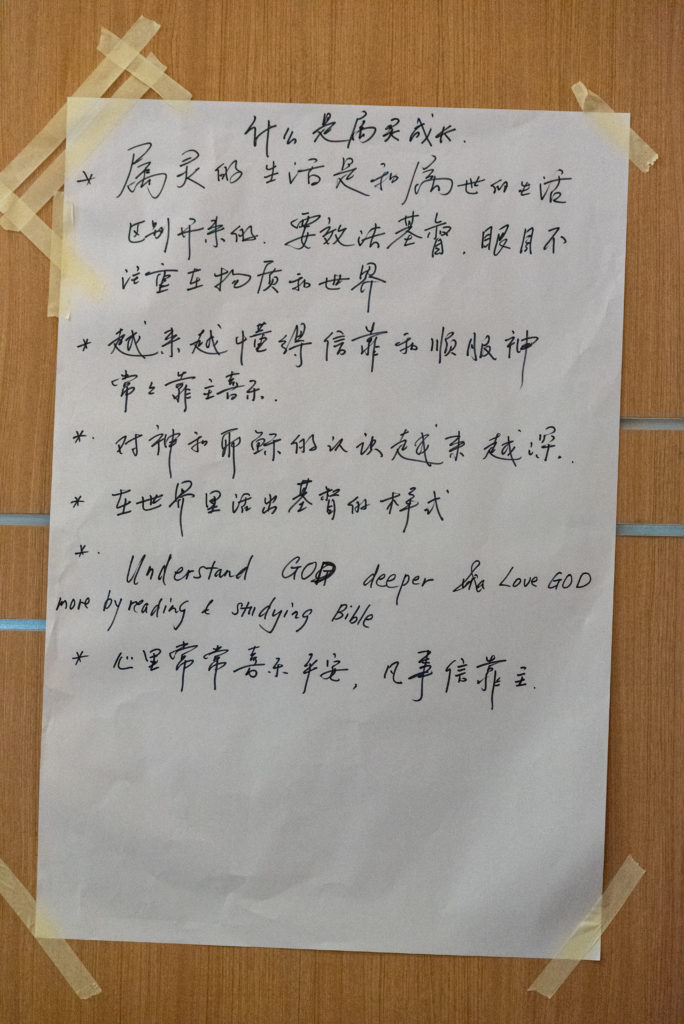 什么是属灵成长.
* 属灵的生活是和属世的生活
区别开来的. 要效法基督. 眼目不
注重在物质和世界
* 越来越懂得信靠和顺服神
常々靠主喜乐.
*. 对神和耶稣的认识越来越深.
* 在世界里活出基督的样式
*.
Understand GOD deeper Love GOD
more by reading & studying Bible
* 心里常常喜乐平安, 凡事信靠主.